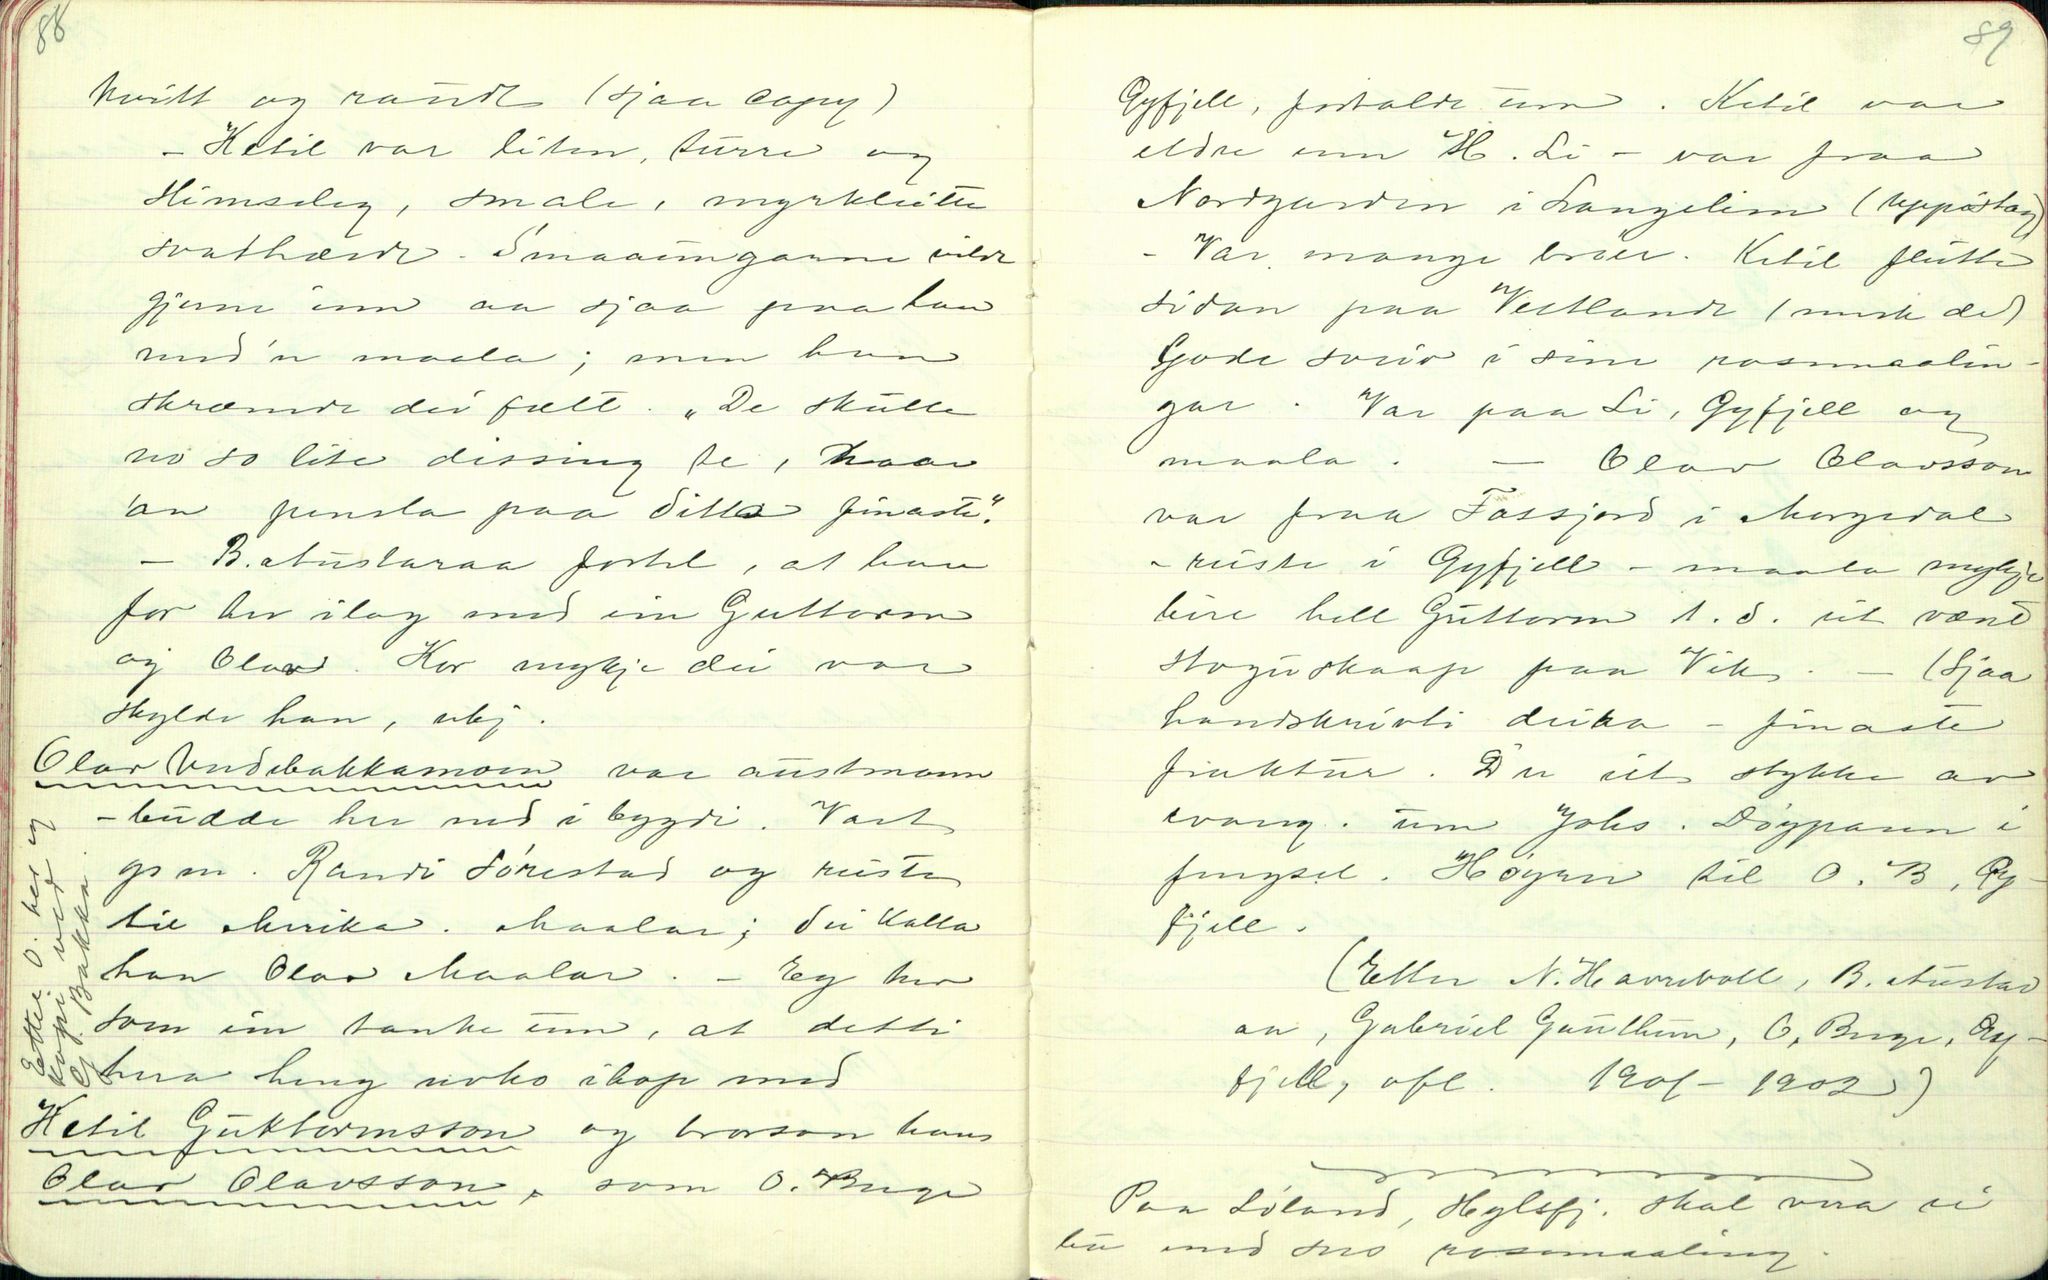 88
kvitt og raudt (sjaa copy)
- Ketil var liten, turre og
skimsleg, smale, myrkleitte
svarthærde. Smaaungarne vilde
gjerne inn aa sjaa paa han
med'n maala; men han
skræmde dei fælt. "De skulle
no so lite dissing te, naar
'an pensla paa ditta finaste".
- B. Austaraa fortel, at han
for her ilag med ein Guttorm
og Olav. Kor mykje dei var
skylde han, ukj.
Olav Vudsbakkamoen var austmann
- budde her ned i bygdi. Vart
gm. Randi Sørestad og reiste
til Amerika. Maalar; dei kalla
han Olav Maalar. - Eg her
som ein tanke um, at dette
kura heng noko ihop med
Ketil Guttormsson og brorson hans
Olav Olavsson, som O. Buge
Etter O. her eg
kopi ved
G. Bakka.
89
Gyfjell, fortalde um. Ketil var
eldre enn H. Li - var fraa
Nordgarden i Langelim (uppdstog)
- Var mange brør. Ketil flutte
sidan paa Vestlandet (merk de)
Gode sviv i sine rosmaalin-
gar. Var paa Li, Gyfjell og
maala. - Olav Olavsson
var fraa Fossjord i Morgedal
- reiste i Gyfjell - maala mykje
beire hell Guttorm t.d. eit vænt
stogu skaap paa Vik. - (Sjaa
handskrivti deira - finaste
fraktur. Du eit stykke av
evang. um Johs. Døyparen i
fengsel. Høyrer til O. B. Gy-
fjell.
(Etter N. Havrevoll, B. Austar
aa, Gabriel Gauthun, O. Buge, Gy-
fjell, ofl. 1901 - 1902)
Paa Løland, Hylsfj. skal vera ei
bu med sno rosemaaling.